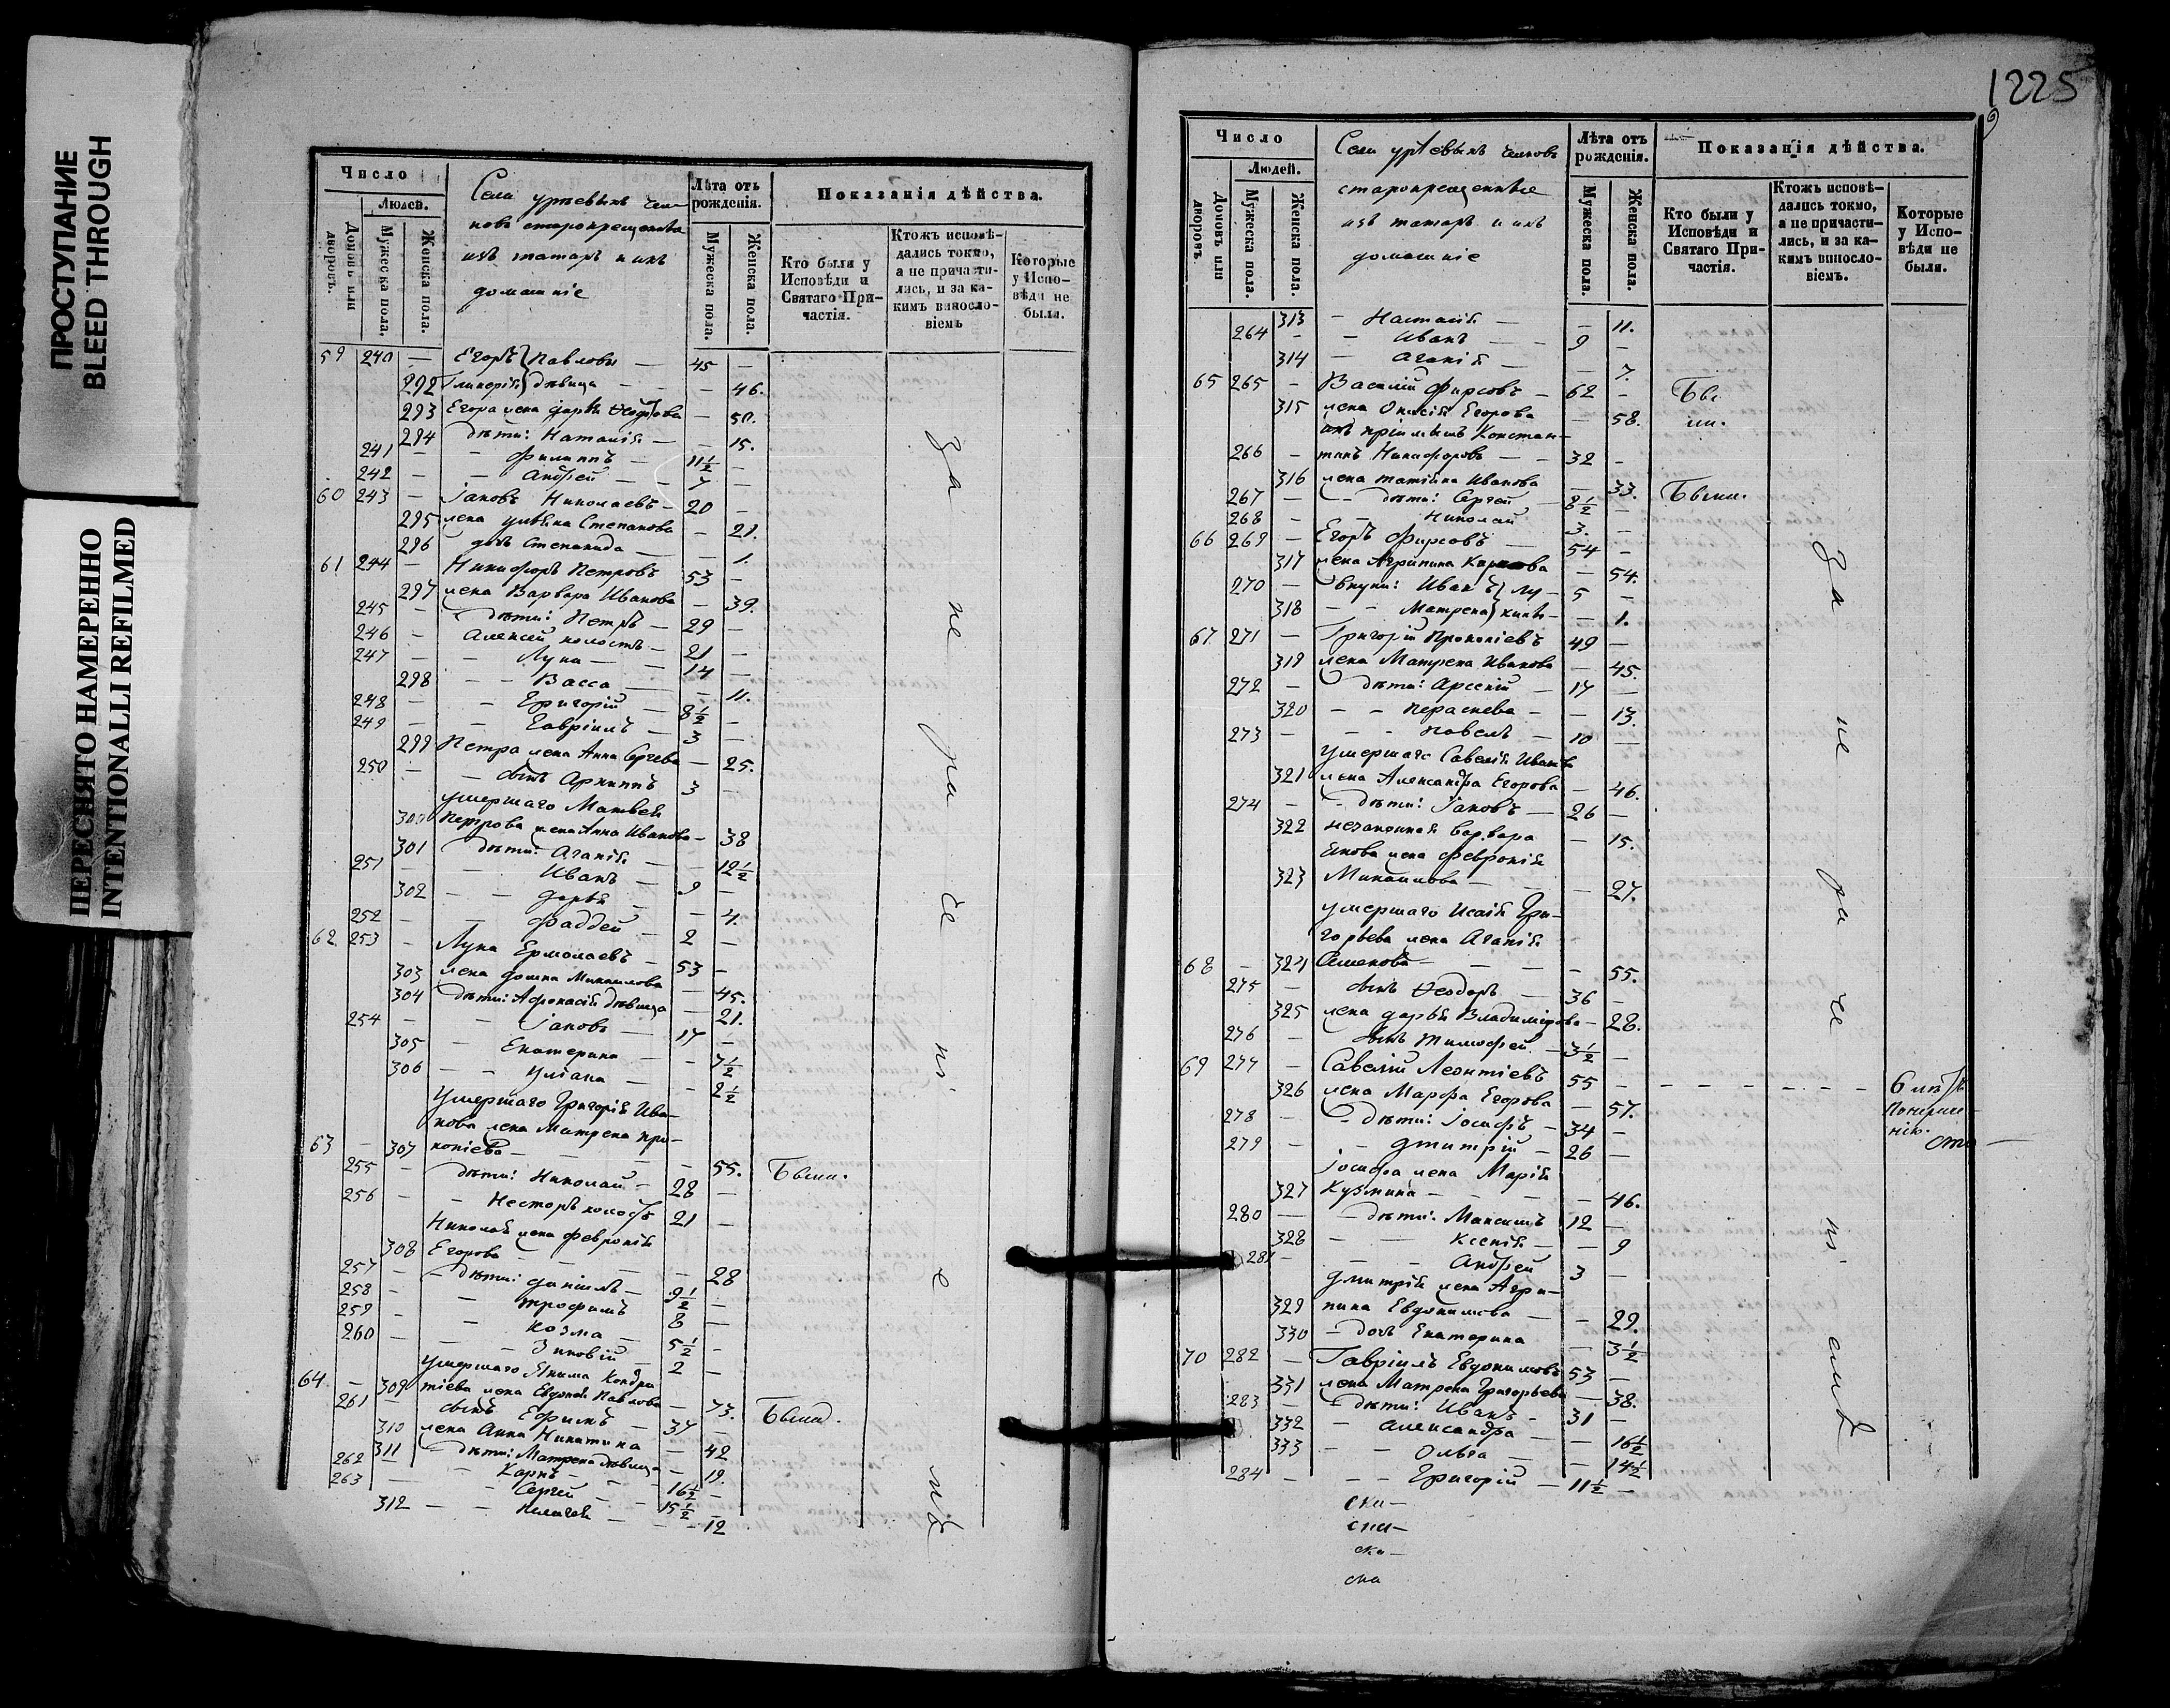 ПРОСТУПАНИЕ
BLEED THROUGH
ПЕРЕСНЯТО НАМЕРЕННО
INTENTIONALLI REFILMED
Число
Людей.
Домовъ или дворовъ.
Мужеска пола.
Женска пола.
Села
старокрещенныя
изъ татаръ и ихъ
домашніе
Лѣта отъ рожденія.
Мужеска пола.
Женска пола.
Показанія дѣйства.
Кто были у Исповѣди и Святаго При-
частія.
Ктожъ исповѣ-
дались токмо,
а не причасти-
лись, и за ка-
кимъ винносло-
віемъ
Которые
у Испо-
вѣди не
были.
59 240 — Егоръ } Павловы — 45 —
292 Гликерія } дѣвица — — 46.
293 Егора жена Дарья Ѳедорова — 50.
294 дѣти: Наталія — — 15.
241 — — Филиппъ — 11½ —
242 — — Андрей — 7 —
60 243 — Іаковъ Николаевъ — 20 —
295 жена Улѣяна Степанова — 21.
296 дочь Степанида — — 1.
61 244 — Никифоръ Петровъ 53 —
297 жена Варвара Иванова — 39.
245 — дѣти: Петръ — 29 —
246 — Алексей холостъ — 21 —
247 — — Лука — 14 —
298 — — Васса — — 11.
248 — — Григорій — 8½ —
249 — — Гавріилъ — 3 —
299 Петра жена Анна Сергева — 25.
250 — — сынъ Архиппъ 3 —
умершаго Матвея
300 Петрова жена Анна Иванова — 38
301 дѣти: Агапія — — 12½
251 — — Иванъ — 9 —
302 — — Дарья — — 4.
252 — — Фаддей — 2 —
62 253 — Лука Ермолаевъ — 53 —
303 жена Домна Михаилова — 45.
304 дѣти: Афонасія дѣвица — 21.
254 — — Іаковъ — 17 —
305 — Екатерина — — 7½
306 — — Уліана — — 2½
умершаго Григорія Ива-
нова жена Матрена Про-
63 — 307 копіева — — 55. Были.
255 — дѣти: Николай — 28 —
256 — — Несторъ холостъ 21 —
Николая жена Февронія
308 Егорова — — 28
257 — — дѣти: Даніилъ — 9½ —
258 — — Трофимъ 8 —
259 — — Козма — 5½ —
260 — — Зиновій — 2 —
умершаго Якима Кондра
64 — 309 тіева жена Евдокія Павлова — 73. Были.
261 — сынъ Ефимъ — 37 —
310 жена Анна Никитина — 42
311 дѣти: Матрена дѣвица — 19.
262 — — Карпъ — 16½ —
263 — — Сергей — 15½ —
312 — — Пелагея — — 12
за нерачені емъ
1225
Число
Людей.
Домовъ или дворовъ.
Мужеска пола.
Женска пола.
Села
старокрещенные
изъ татаръ и ихъ
домашніе
Лѣта отъ рожденія.
Мужеска пола.
Женска пола.
Показанія дѣйства.
Кто были у
Исповѣди и
Святаго При-
частія.
Ктожъ исповѣ-
дались токмо,
а не причасти-
лись, и за ка-
кимъ винносло-
віемъ.
Которые
у Испо-
вѣди не
были.
313 — Настасія — — 11.
264 — — Иванъ — 9 —
314 — Агапія — — 7.
65 265 — Василій Фирсовъ — 62 — Бы
315 жена Онисія Егорова — 58. ли.
ихъ пріимышъ Констан-
266 — тинъ Никифоровъ — 32 —
316 жена Татіяна Иванова — 33. Были.
267 — — дѣти: Сергей — 8½ —
268 — — Николай 3. —
66 269 — Егоръ Фирсовъ — 54 —
317 жена Агрипина Карпова — 54.
270 — внуки: Иванъ } Лу- 5 —
318 — — Матрена } кины — — 1.
67 271 — Григорій Прокопіевъ 49 —
319 жена Матрена Иванова — 45.
272 — дѣти: Арсеній — 17 —
320 — — Пераскева — — 13.
273 — — Павелъ — 10 —
умершаго Савелія Иванова
321 жена Александра Егорова — 46.
274 — — дѣти: Іаковъ — 26 —
322 незаконная Варвара — 15.
Якова жена Февронія
323 Михаилова — — 27.
умершаго Исаія Гри-
горьева жена Агапія
68 — 324 Семенова — — 55.
275 — сынъ Ѳеодоръ — 36 —
325 жена Дарья Владимірова — 28.
276 — сынъ Тимофей — 3½ —
69 277 — Савелій Леонтіевъ 55 — — — — — — 6 лѣтъ
326 жена Марфа Егорова — 57.
278 — — дѣти: Іосифъ — 34 —
279 — — Дмитрій — 26 —
Іосифа жена Марія
327 Кузмина — — 46.
280 — — дѣти: Максимъ 12 —
328 — — Ксенія — — 9
281 — — Андрей 3 —
Дмитрія жена Агри-
329 пина Евдокимова — — 29.
330 — дочь Екатерина — 3½
70 282 — Гавріилъ Евдокимовъ 53 —
331 жена Матрена Григорьева — 38.
283 — — дѣти: Иванъ — 31 —
332 — Александра — — 16½
333 — — Ольга — — 14½
284 — — — Григорій — 11½ —
за нерачені емъ